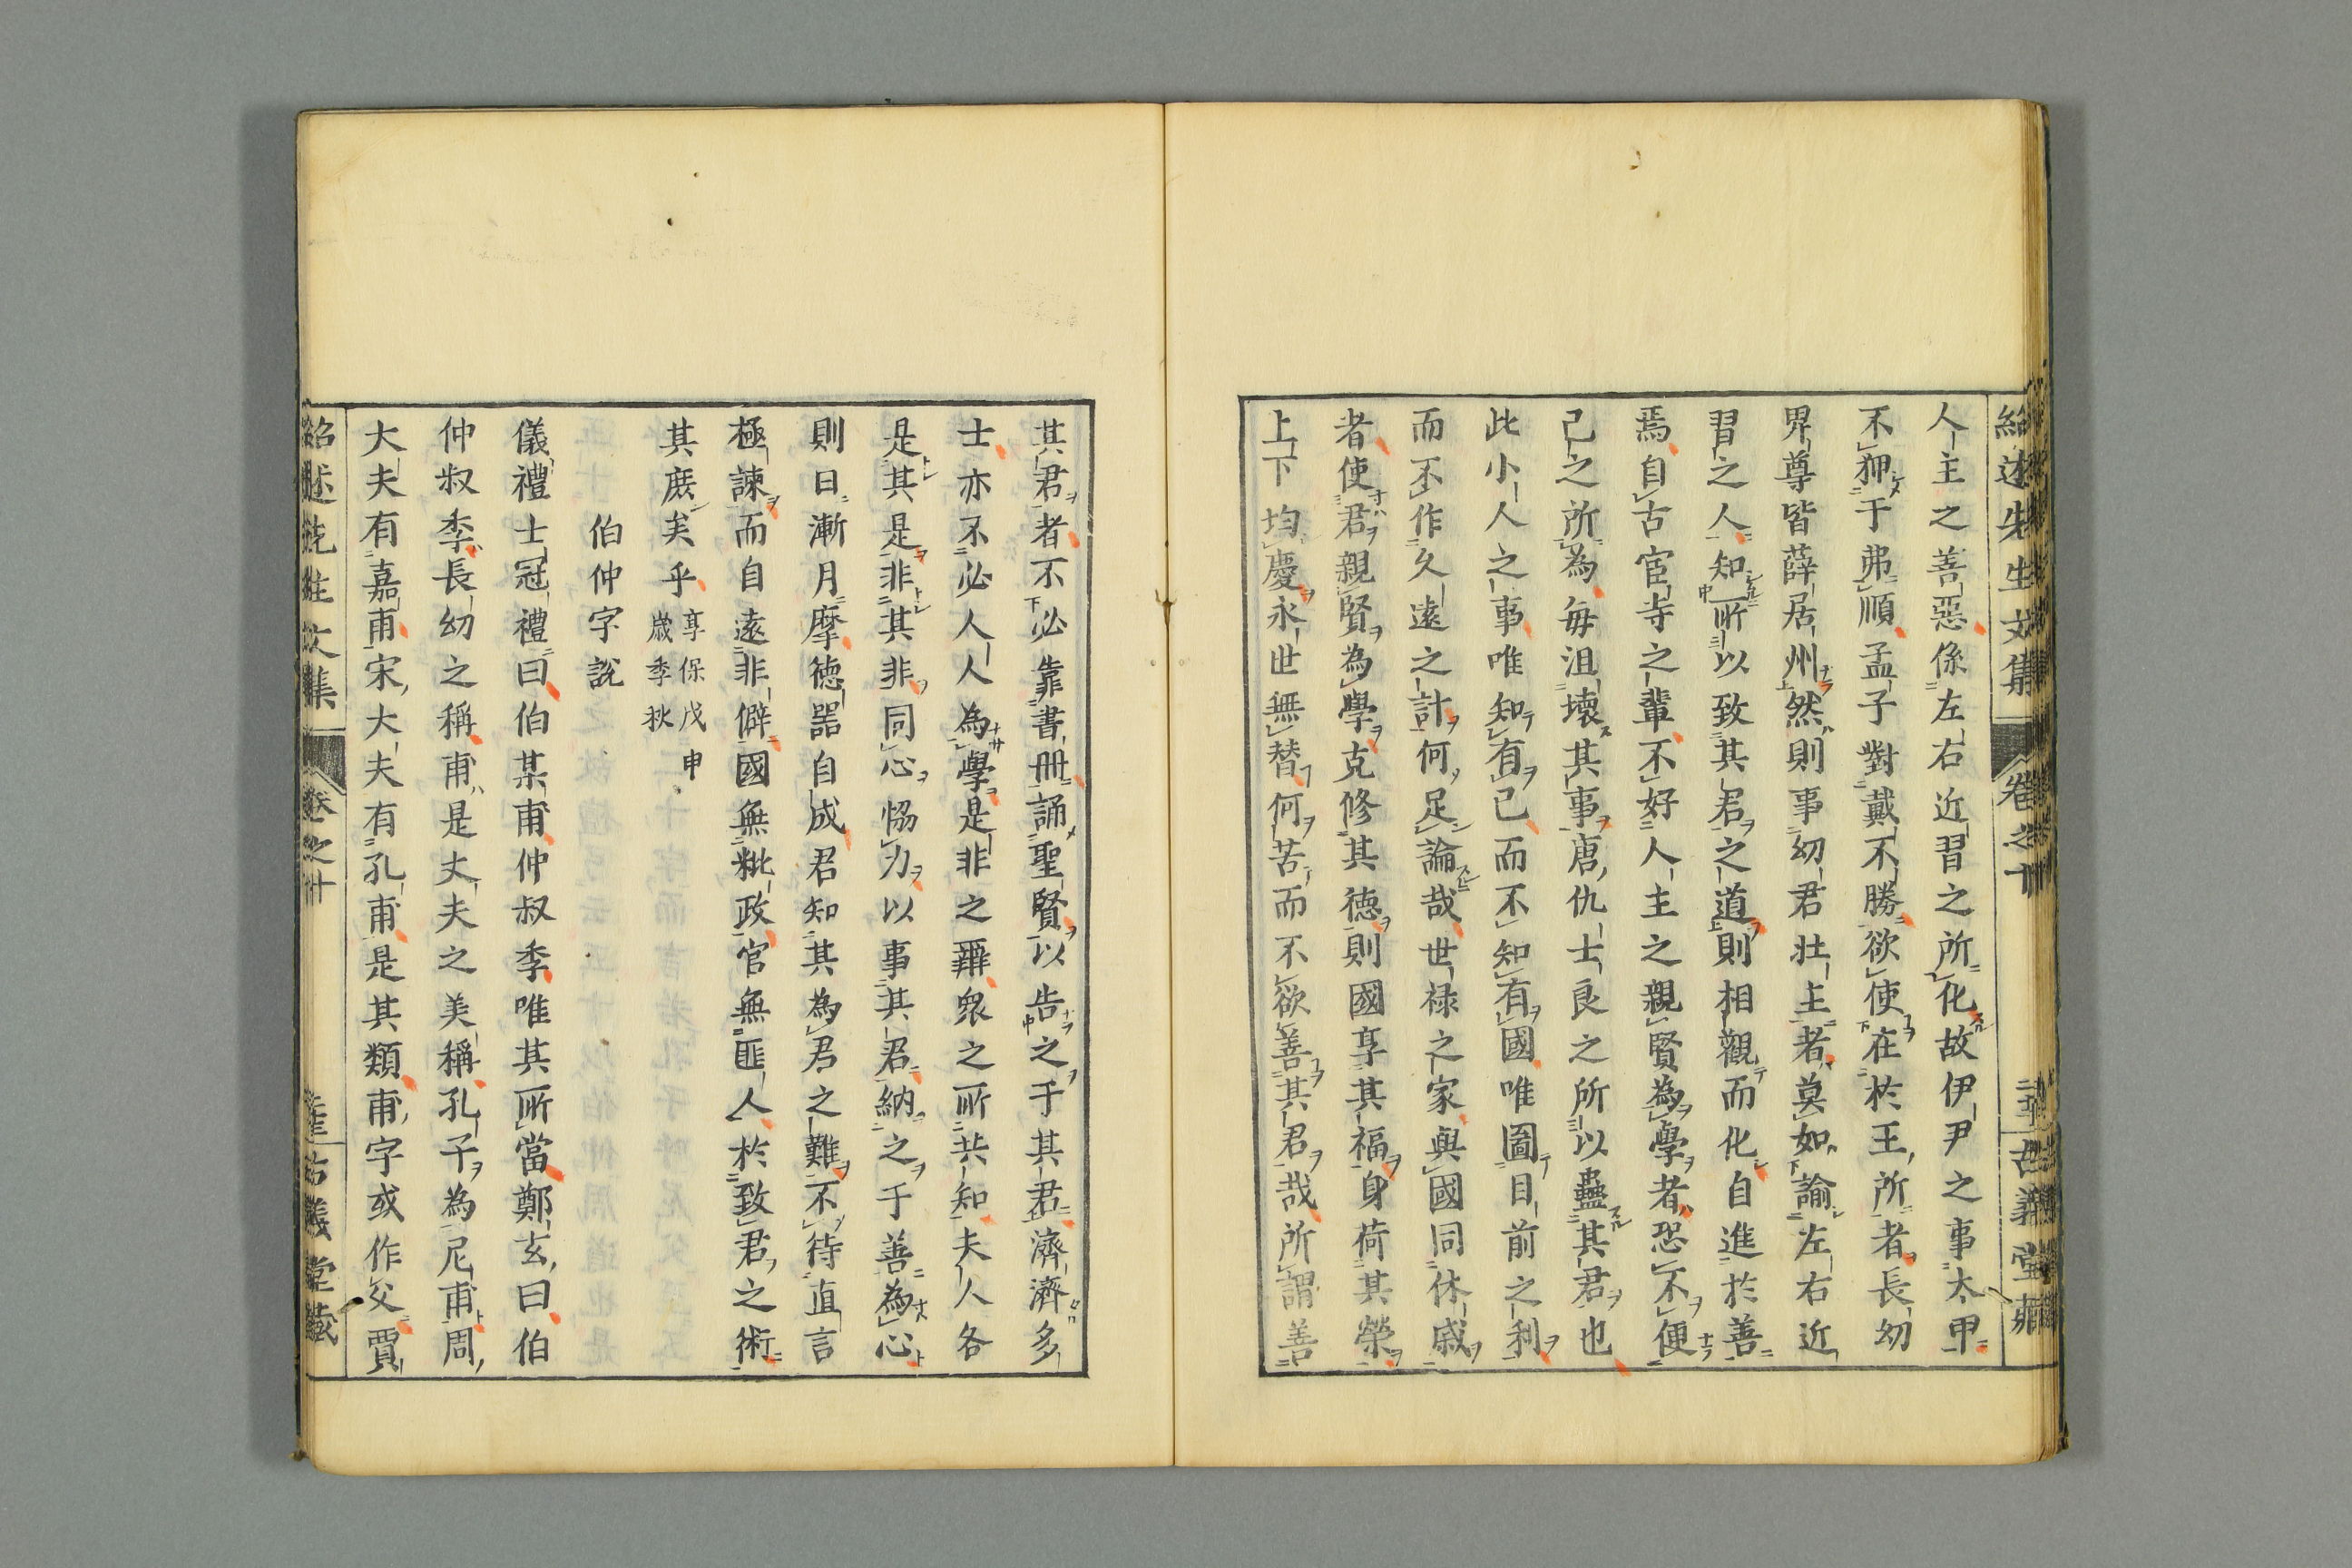 紹述先生文集
卷之十
古義堂藏
人主之善惡係左右近習之所化故伊尹之事太甲
不狎于弗順孟子對戴不勝欲使在於王所者長幼
卑尊皆薛居州然則事幼君壯主者莫如諭左右近
習之人知所以致其君之道則相觀而化自進於善
焉自古宦寺之輩不好人主之親賢為學者恐不便
己之所為每沮壞其事唐仇士良之所以蠱其君也
此小人之事唯知有己而不知有國唯圖目前之利
而不作久遠之計何足論哉世祿之家與國同休戚
者使君親賢為學克修其德則國享其福身荷其榮
上下均慶永世無替何苦而不欲善其君哉所謂善
其君者不必靠書冊誦聖賢以告之于其君濟濟多
士亦不必人人為學是非之辨衆之所共知夫人各
是其是非其非同心恊力以事其君納之于善為心
則日漸月摩德噐自成君知其為君之難不待直言
極諫而自遠非僻國無粃政官無匪人於致君之術
其庶矣乎享保戊申
歲季秋
伯仲字說
儀禮士冠禮曰伯某甫仲叔季唯其所當鄭玄曰伯
仲叔季長幼之稱甫是丈夫之美稱孔子為尼甫周
大夫有嘉甫宋大夫有孔甫是其類甫字或作父賈
紹述先生文集
卷之十
古義堂藏